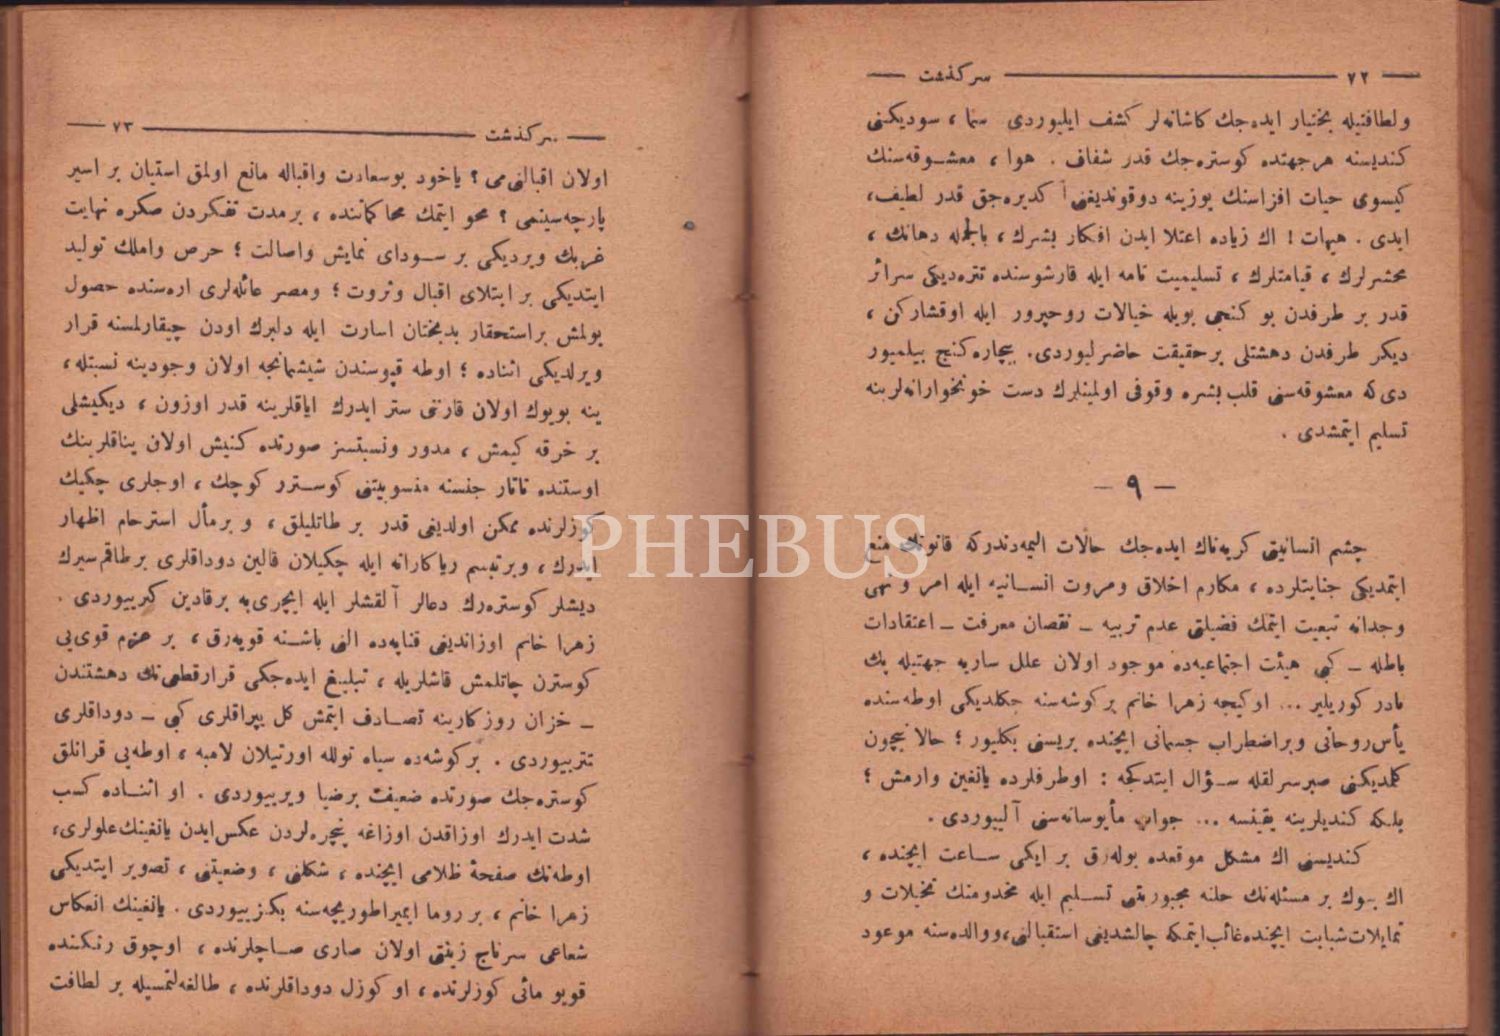 ٧٢ سرگذشت
ولطافتيله بختيار ايده‌جك كاشانه‌لر كشف ايليوردى سما ، سوديكنى
كنديسنه هرجهتده كوستره‌جك قدر شفاف . هوا ، معشوقه‌سنك
كيسوى حيات افزاسنك يوزينه دوقونديغنى آكديره‌جق قدر لطيف،
ايدى . هيهات ! اك زياده اعتلا ايدن افكار بشرك ، بالجمله دهانك ،
محشرلرك ، قيامتلرك ، تسليميت تامه ايله قارشوسنده تتره‌ديكى سرائر
قدر بر طرفدن بو كنجى بويله خيالات روحپرور ايله اوقشاركن ،
ديكر طرفدن دهشتلى برحقيقت حاضرليوردى. بيچاره كنج بيلميور
دى كه معشوقه‌سنى قلب بشره وقوفى اولمينلرك دست خونخوارانه‌لرينه
تسليم ايتمشدى .
— ٩ —
چشم انسانيتى كريه‌ناك ايده‌جك حالات اليمه‌دندركه قانونك منع
ايتمديكى جنايتلرده ، مكارم اخلاق ومروت انسانيه ايله امر و نهى
وجدانه تبعيت ايتمك فضيلتى عدم تربيه ـ نقصان معرفت ـ اعتقادات
باطله ـ كبى هيئت اجتماعيه‌ده موجود اولان علل ساريه جهتيله پك
نادر كوريلير ... اوكيجه زهرا خانم بركوشه‌سنه چكلديكى اوطه‌سنده
يأس روحانى وبراضطراب جسمانى ايچنده بريسنى بكليور ؛ حالا نيچون
كلمديكنى صبرسزلقله سؤال ايتدكجه : اوطرفلرده يانغين وارمش ؛
بلكه كنديلرينه يقينسه ... جواب مأيوسانه‌سنى آليوردى .
كنديسنى اك مشكل موقعده بوله‌رق بر ايكى ساعت ايچنده ،
اك بيوك بر مسئله‌نك حلنه مجبوريتى تسليم ايله مخدومنك تخيلات و
تمايلات شبابت ايچنده غائب ايتمكه چالشديغى استقبالنى، ووالده‌سنه موعود
سرگذشت ٧٣
اولان اقبالنى‌مى ؟ ياخود بوسعادت واقباله مانع اولمق استيان بر اسير
پارچه‌سينمى ؟ محو ايتمك محاكماتنده ، برمدت تفكردن صكره نهايت
غربك ويرديكى بر سوداى نمايش واصالت ؛ حرص واملك توليد
ايتديكى بر ابتلاى اقبال وثروت ؛ ومصر عائله‌لرى اره‌سنده حصول
بولمش براستحقار بدبختان اسارت ايله دلبرك اودن چيقارلمسنه قرار
ويرلديكى اثناده ؛ اوطه قپوسندن شيشمانجه اولان وجودينه نسبتله ،
ينه بويوك اولان قارنى ستر ايدرك اياقلرينه قدر اوزون ، ديكيشلى
بر خرقه كيمش ، مدور ونسبتسز صورتده كنيش اولان يناقلرينك
اوستنده تاتار جنسنه منسوبيتنى كوسترر كوچك ، اوجلرى چكيك
كوزلرنده ممكن اولديغى قدر بر طاتليلق ، و برمأل استرحام اظهار
ايدرك ، وبرتبسم رياكارانه ايله چكيلان قالين دوداقلرى برطاقم سيرك
ديشلر كوستره‌رك دعالر آلقشلر ايله ايچرى‌يه برقادين كيرييوردى .
زهرا خانم اوزانديغى قناپه‌ده النى باشنه قويه‌رق ، بر عزم قوى‌يى
كوسترن چاتلمش قاشلريله ، تبليغ ايده‌جكى قرارقطعى‌نك دهشتندن
ـ خزان روزكارينه تصادف ايتمش كل يپراقلرى كبى ـ دوداقلرى
تتريیوردى . بركوشه‌ده سياه توللە اورتيلان لامبه ، اوطه‌يى قرانلق
كوستره‌جك صورتده ضعيف برضيا ويرييوردى . او اثناده كسب
شدت ايدرك اوزاقدن اوزاغه پنجره‌لردن عكس ايدن يانغينك علولرى،
اوطه‌نك صفحهٔ ظلامى ايچنده ، شكلنى ، وضعيتنى ، تصوير ايتديكى
زهرا خانم ، بر روما ايمپراطوريچه‌سنه بكزييوردى . يانغينك انعكاس
شعاعى سرتاج زينتى اولان صارى صاچلرنده ، اوچوق رنكنده
قويو مائى كوزلرنده ، او كوزل دوداقلرنده ، طالغه‌لنمسيله بر لطافت
PHEBUS